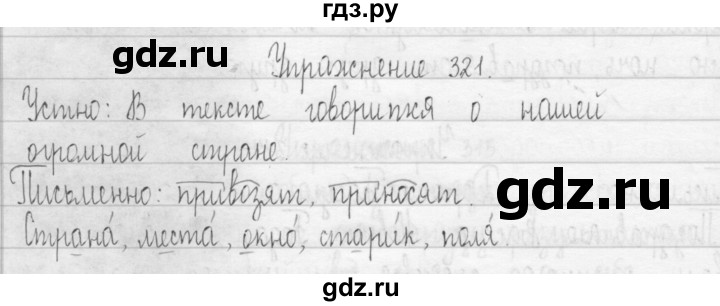 гдз.ру
gdz.ru
Упражнение 321.
Устно: В тексте говорится о нашей
gdz.ru
огромной стране.
Письменно: привозят, приносят.
gdz.ru
Страна́, места́, окно́, стари́к, поля́
gdz.ru